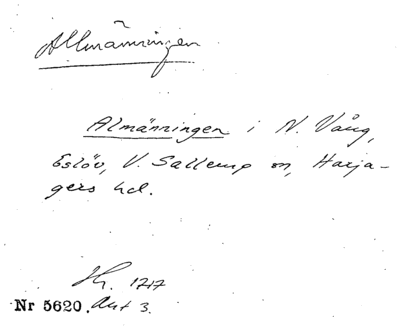 Allmänningen
Almänningen i N. Vång,
Eslöv, V. Sallerup sn, Harja-
gers hd.
Hg. 1717
Nr 5620. Akt 3.